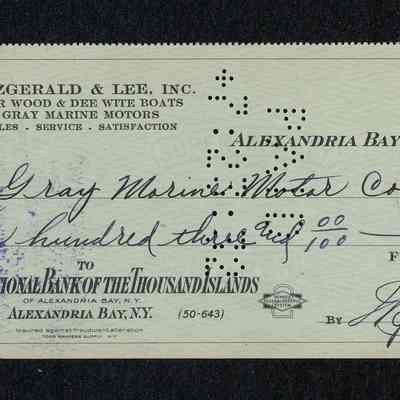 ZGERALD & LEE, INC.
R WOOD & DEE WITE BOATS
GRAY MARINE MOTORS
LES - SERVICE - SATISFACTION
ALEXANDRIA BAY
Gray Marine Motor Co
hundred three and 00/100
TO
TIONAL BANK OF THE THOUSAND ISLANDS
OF ALEXANDRIA BAY, N.Y.
ALEXANDRIA BAY, N.Y. (50-643)
Insured against fraudulent alteration
TODD BANKERS SUPPLY N.Y.
F
BY